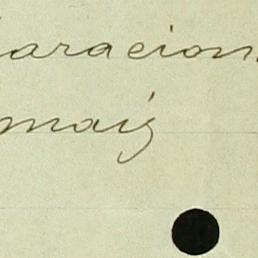 aracion
maiz